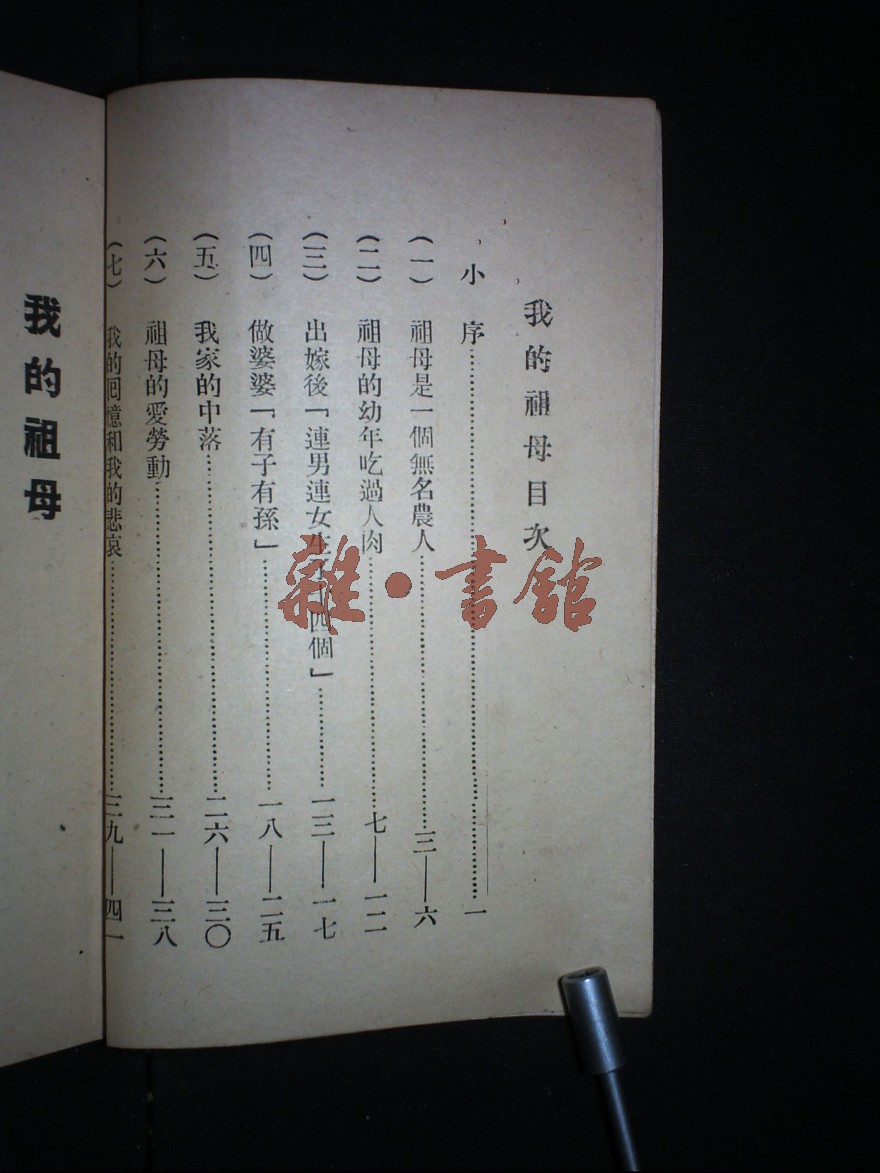 我的祖母目次
小序…………一
(一) 祖母是一個無名農人…………三——六
(二) 祖母的幼年吃過人肉…………七——一二
(三) 出嫁後「連男連女生了十四個」…………一三——一七
(四) 做婆婆「有子有孫」…………一八——二五
(五) 我家的中落…………二六——三〇
(六) 祖母的愛勞動…………三一——三八
(七) 我的回憶和我的悲哀…………三九——四一
我的祖母
雜·書館